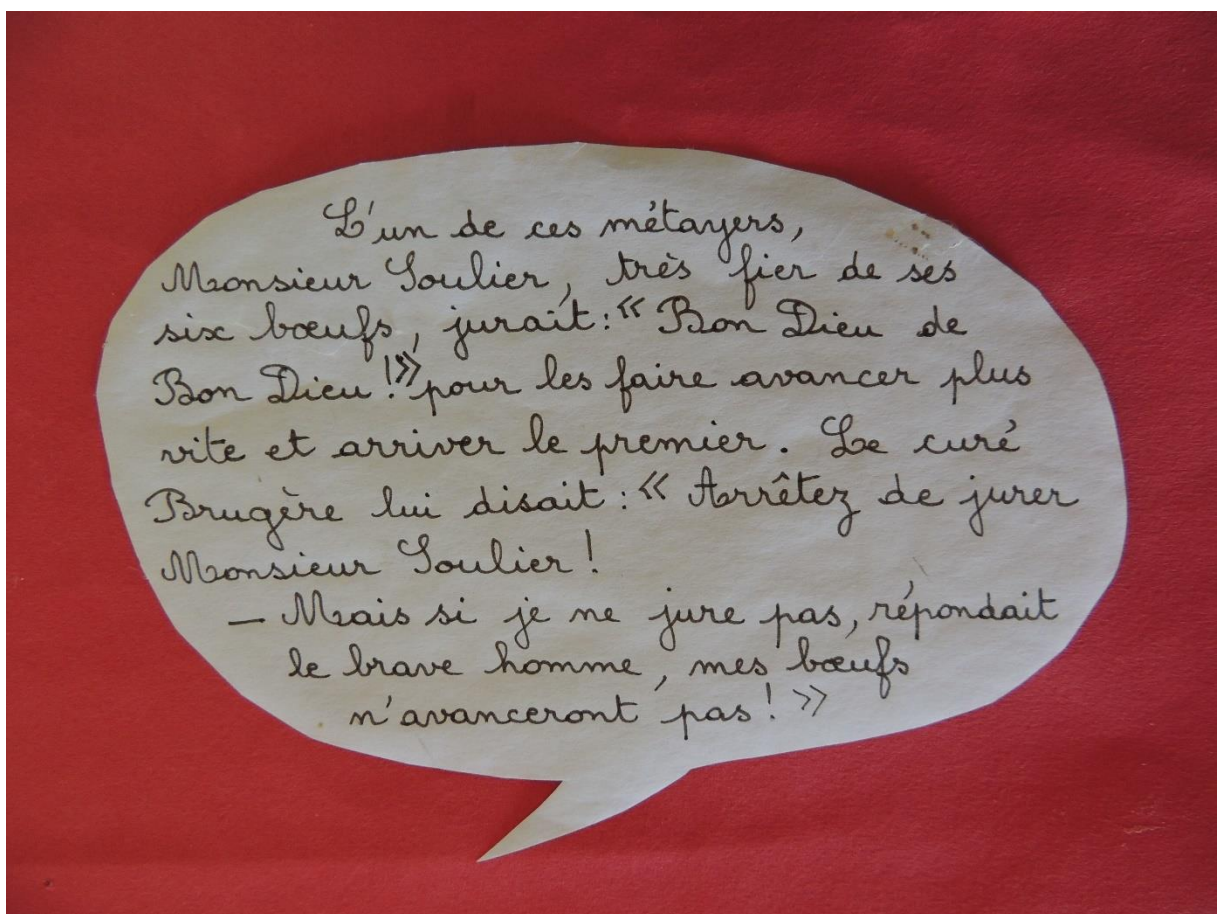 L'un de ces métayers,
Monsieur Soulier, très fier de ses
six bœufs, jurait : « Bon Dieu de
Bon Dieu ! » pour les faire avancer plus
vite et arriver le premier. Le curé
Brugère lui disait : « Arrêtez de jurer
Monsieur Soulier !
– Mais si je ne jure pas, répondait
le brave homme, mes bœufs
n'avanceront pas ! »